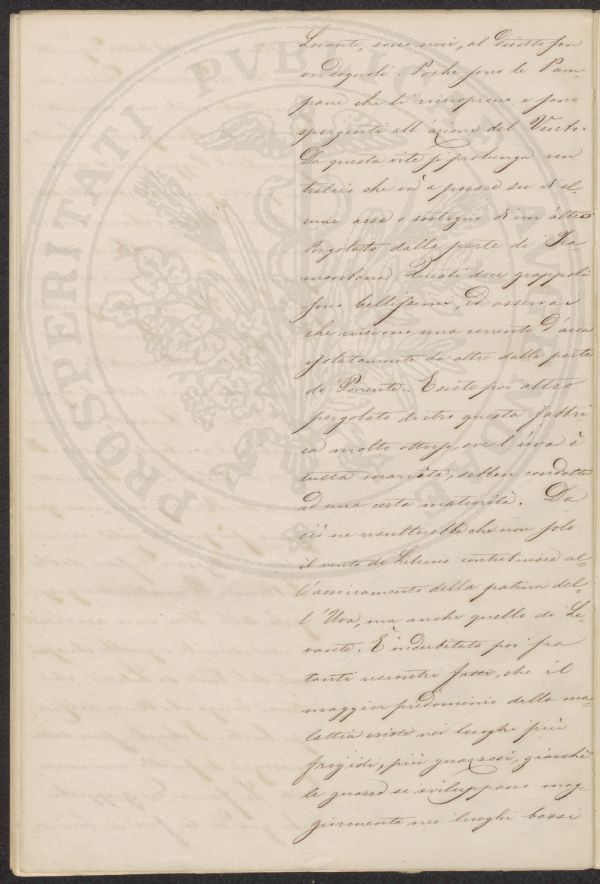 Levante, sono neri, al disotto son
verdognoli. Poche sono le Pam-
pane che li ricuoprono e sono
sporgenti all'azione del Vento.
Da questa vite si prolunga un
tralcio che và a posare su di al-
cune asse o sostegno di un'altro
Pergolato dalla parte di Tra
montana. Questi dieci grappoli
sono bellissimi, ed osservai
che ricevono una corrente d'aria
isolatamente da altro dalla parte
di Ponente. Esiste poi altro
pergolato dietro questa fabbri
ca molto, ove l'uva è
tutta marcita, sebben condotta
ad una certa maturità. Da
ciò ne risulterebbe che non solo
il vento di Libeccio contribuisce al-
l'annerimento della patina del-
l'Uva, ma anche quello di Le-
vante. È indubitato poi fra
tanti riscontri fatti, che il
maggior predominio della ma-
lattia esiste nei luoghi più
frigidi, più guazzosi, giacchè
le guazze si sviluppano mag-
giormente nei luoghi bassi
PROSPERITATI PVBLICAE